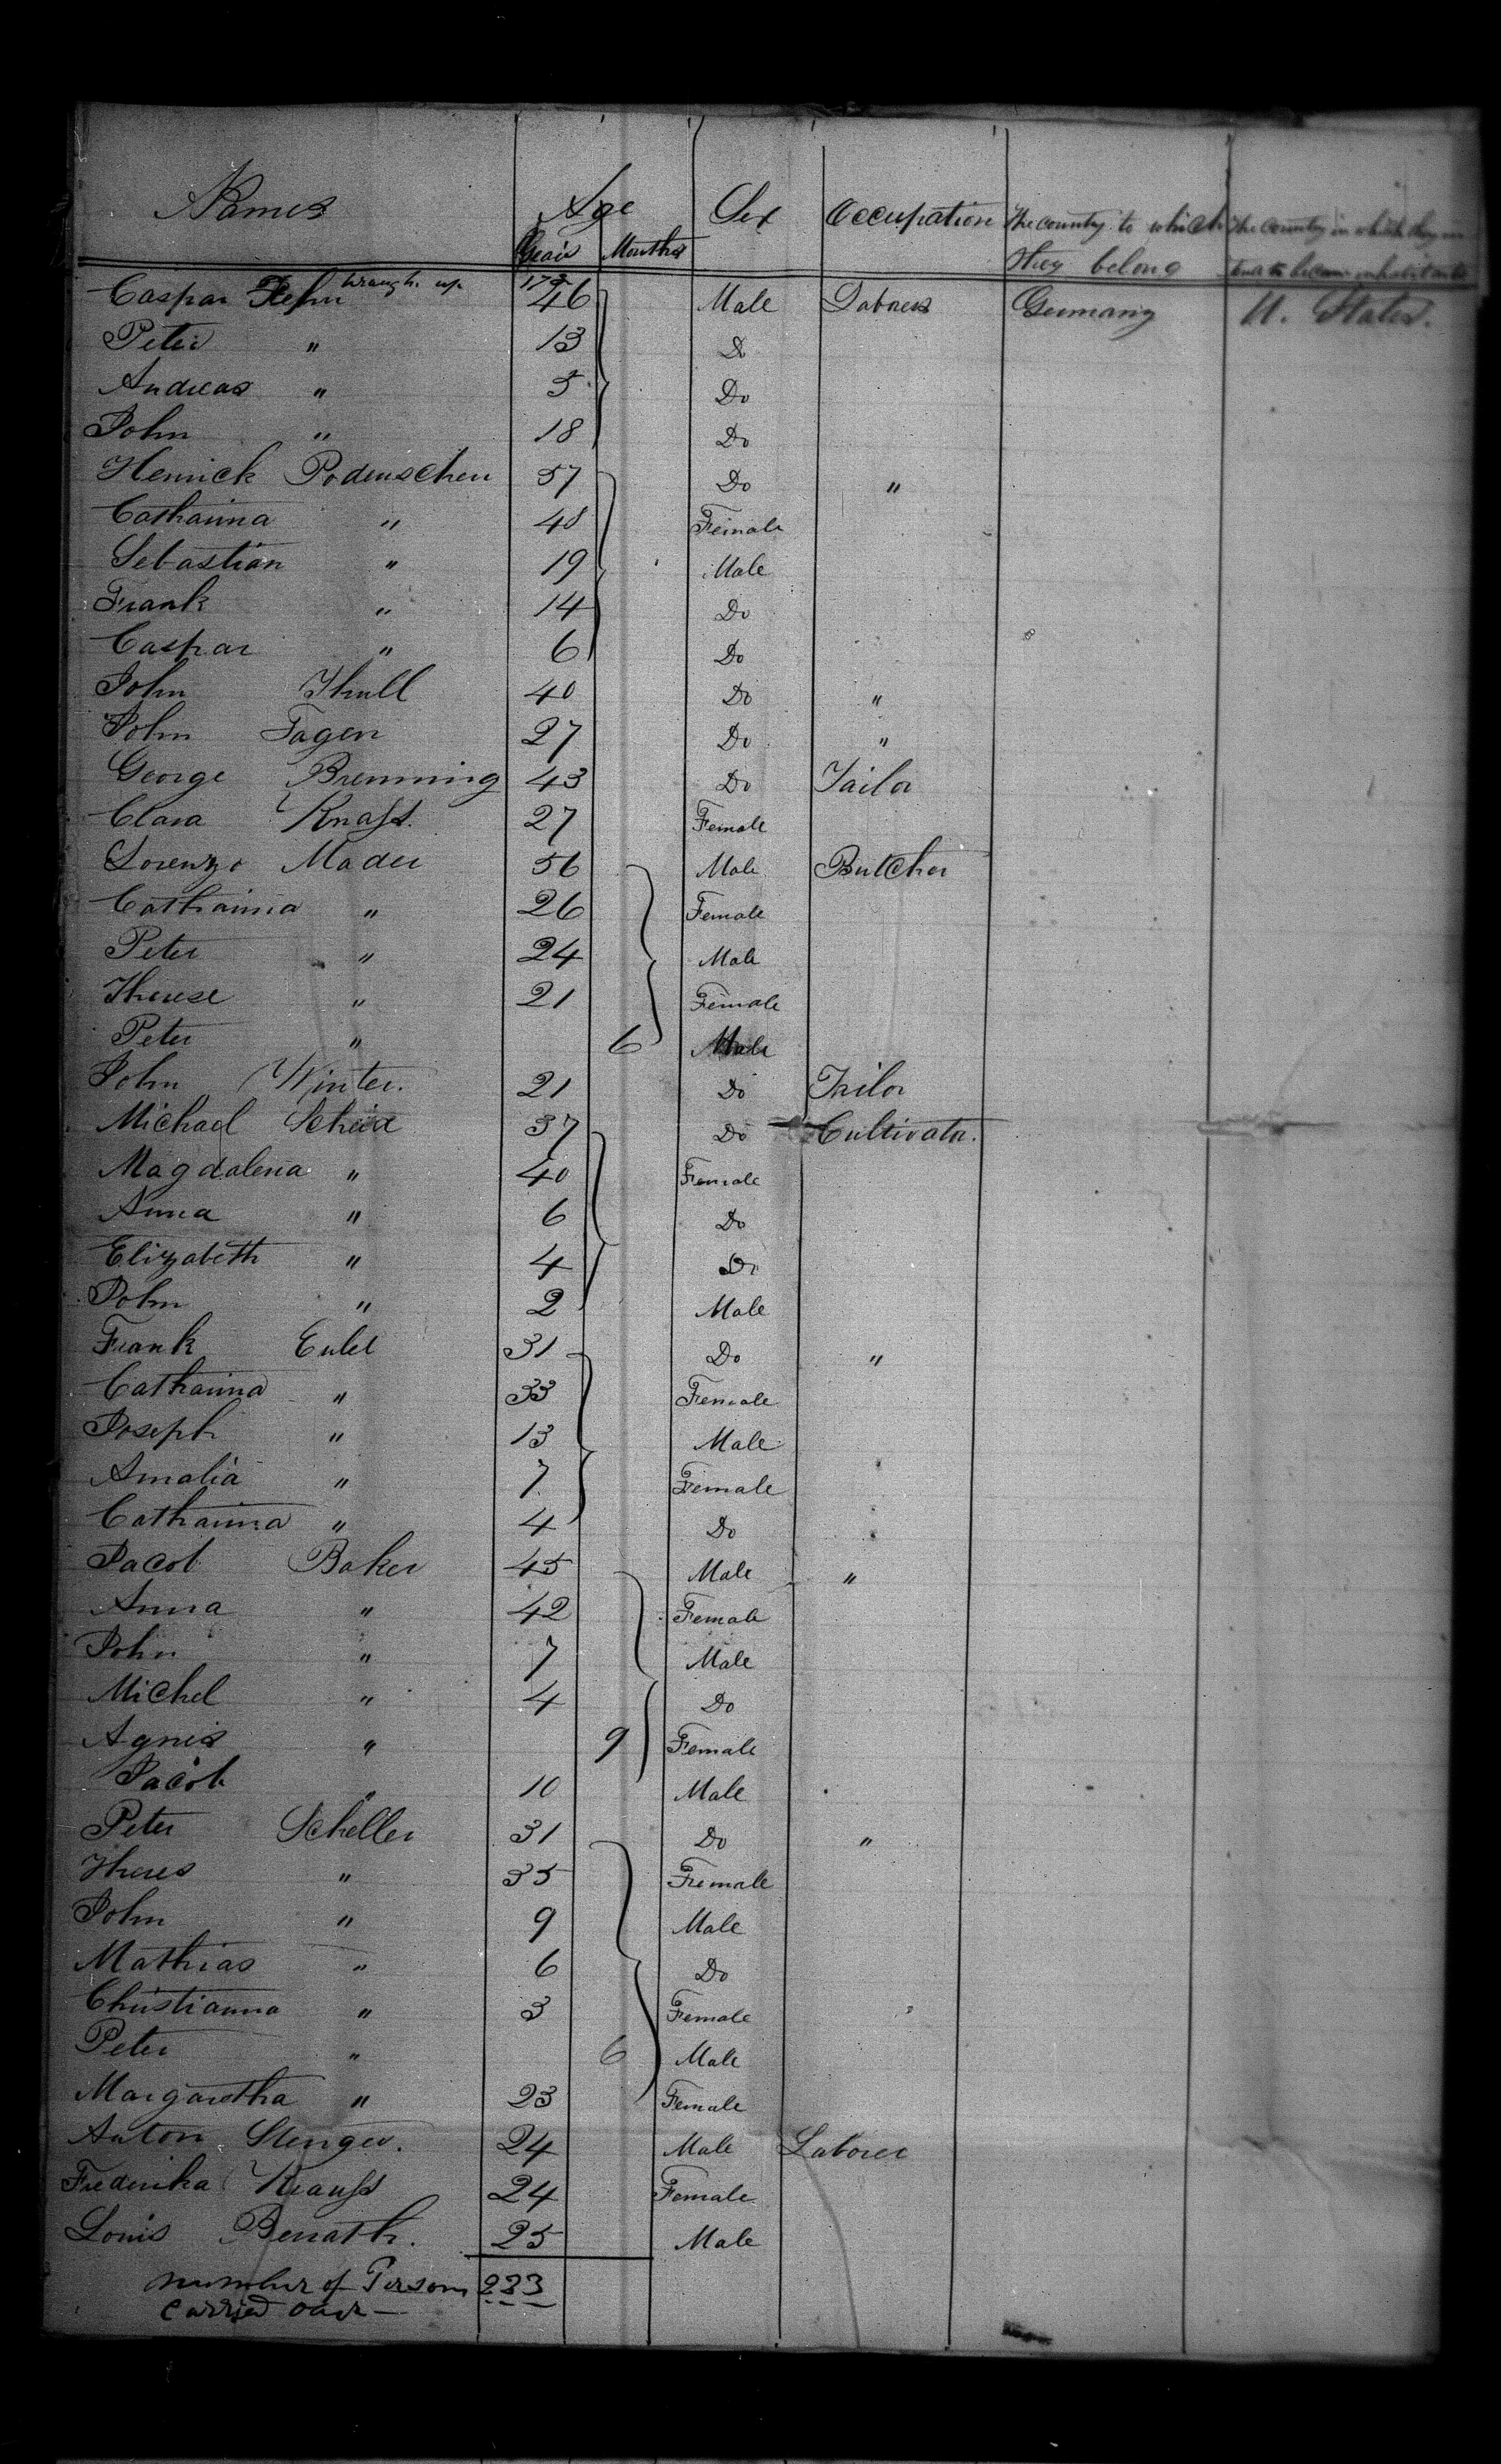 Names Age Sex Occupation The country to which The country in which they
Years Months they belong to become inhabitants
brough. up 178
Caspar Fehn 46 Male Laborer Germany U. States.
Peter " 13 Do
Andreas " 5 Do
John " 18 Do
Henrick Podenschen 57 Do "
Catharina " 48 Female
Sebastian " 19 Male
Frank " 14 Do
Caspar " 6 Do
John Thull 40 Do "
John Fagen 27 Do "
George Bremming 43 Do Tailor
Clara Knafs. 27 Female
Lorenzo Mader 56 Male Butcher
Catharina " 26 Female
Peter " 24 Male
Therese " 21 Female
Peter " 6 Male
John Winter. 21 Do Tailor
Michael 37 Do Cultivator.
Magdalena " 40 Female
Anna " 6 Do
Elizabeth " 4 Do
John " 2 Male
Frank Eulel 31 Do "
Catharina " 33 Female
Joseph " 13 Male
Amalia " 7 Female
Catharina " 4 Do
Jacob Baker 45 Male "
Anna " 42 Female
John " 7 Male
Michel " 4 Do
Agnes " 9 Female
Jacob " 10 Male
Peter Scheller 31 Do "
Theres " 35 Female
John " 9 Male
Mathias " 6 Do
Christianna " 3 Female
Peter " 6 Male
Margaretha " 23 Female
Anton Stenger. 24 Male Laborer
Frederika Kraufs 24 Female
Louis Benath. 25 Male
number of Persons 223
carried over —